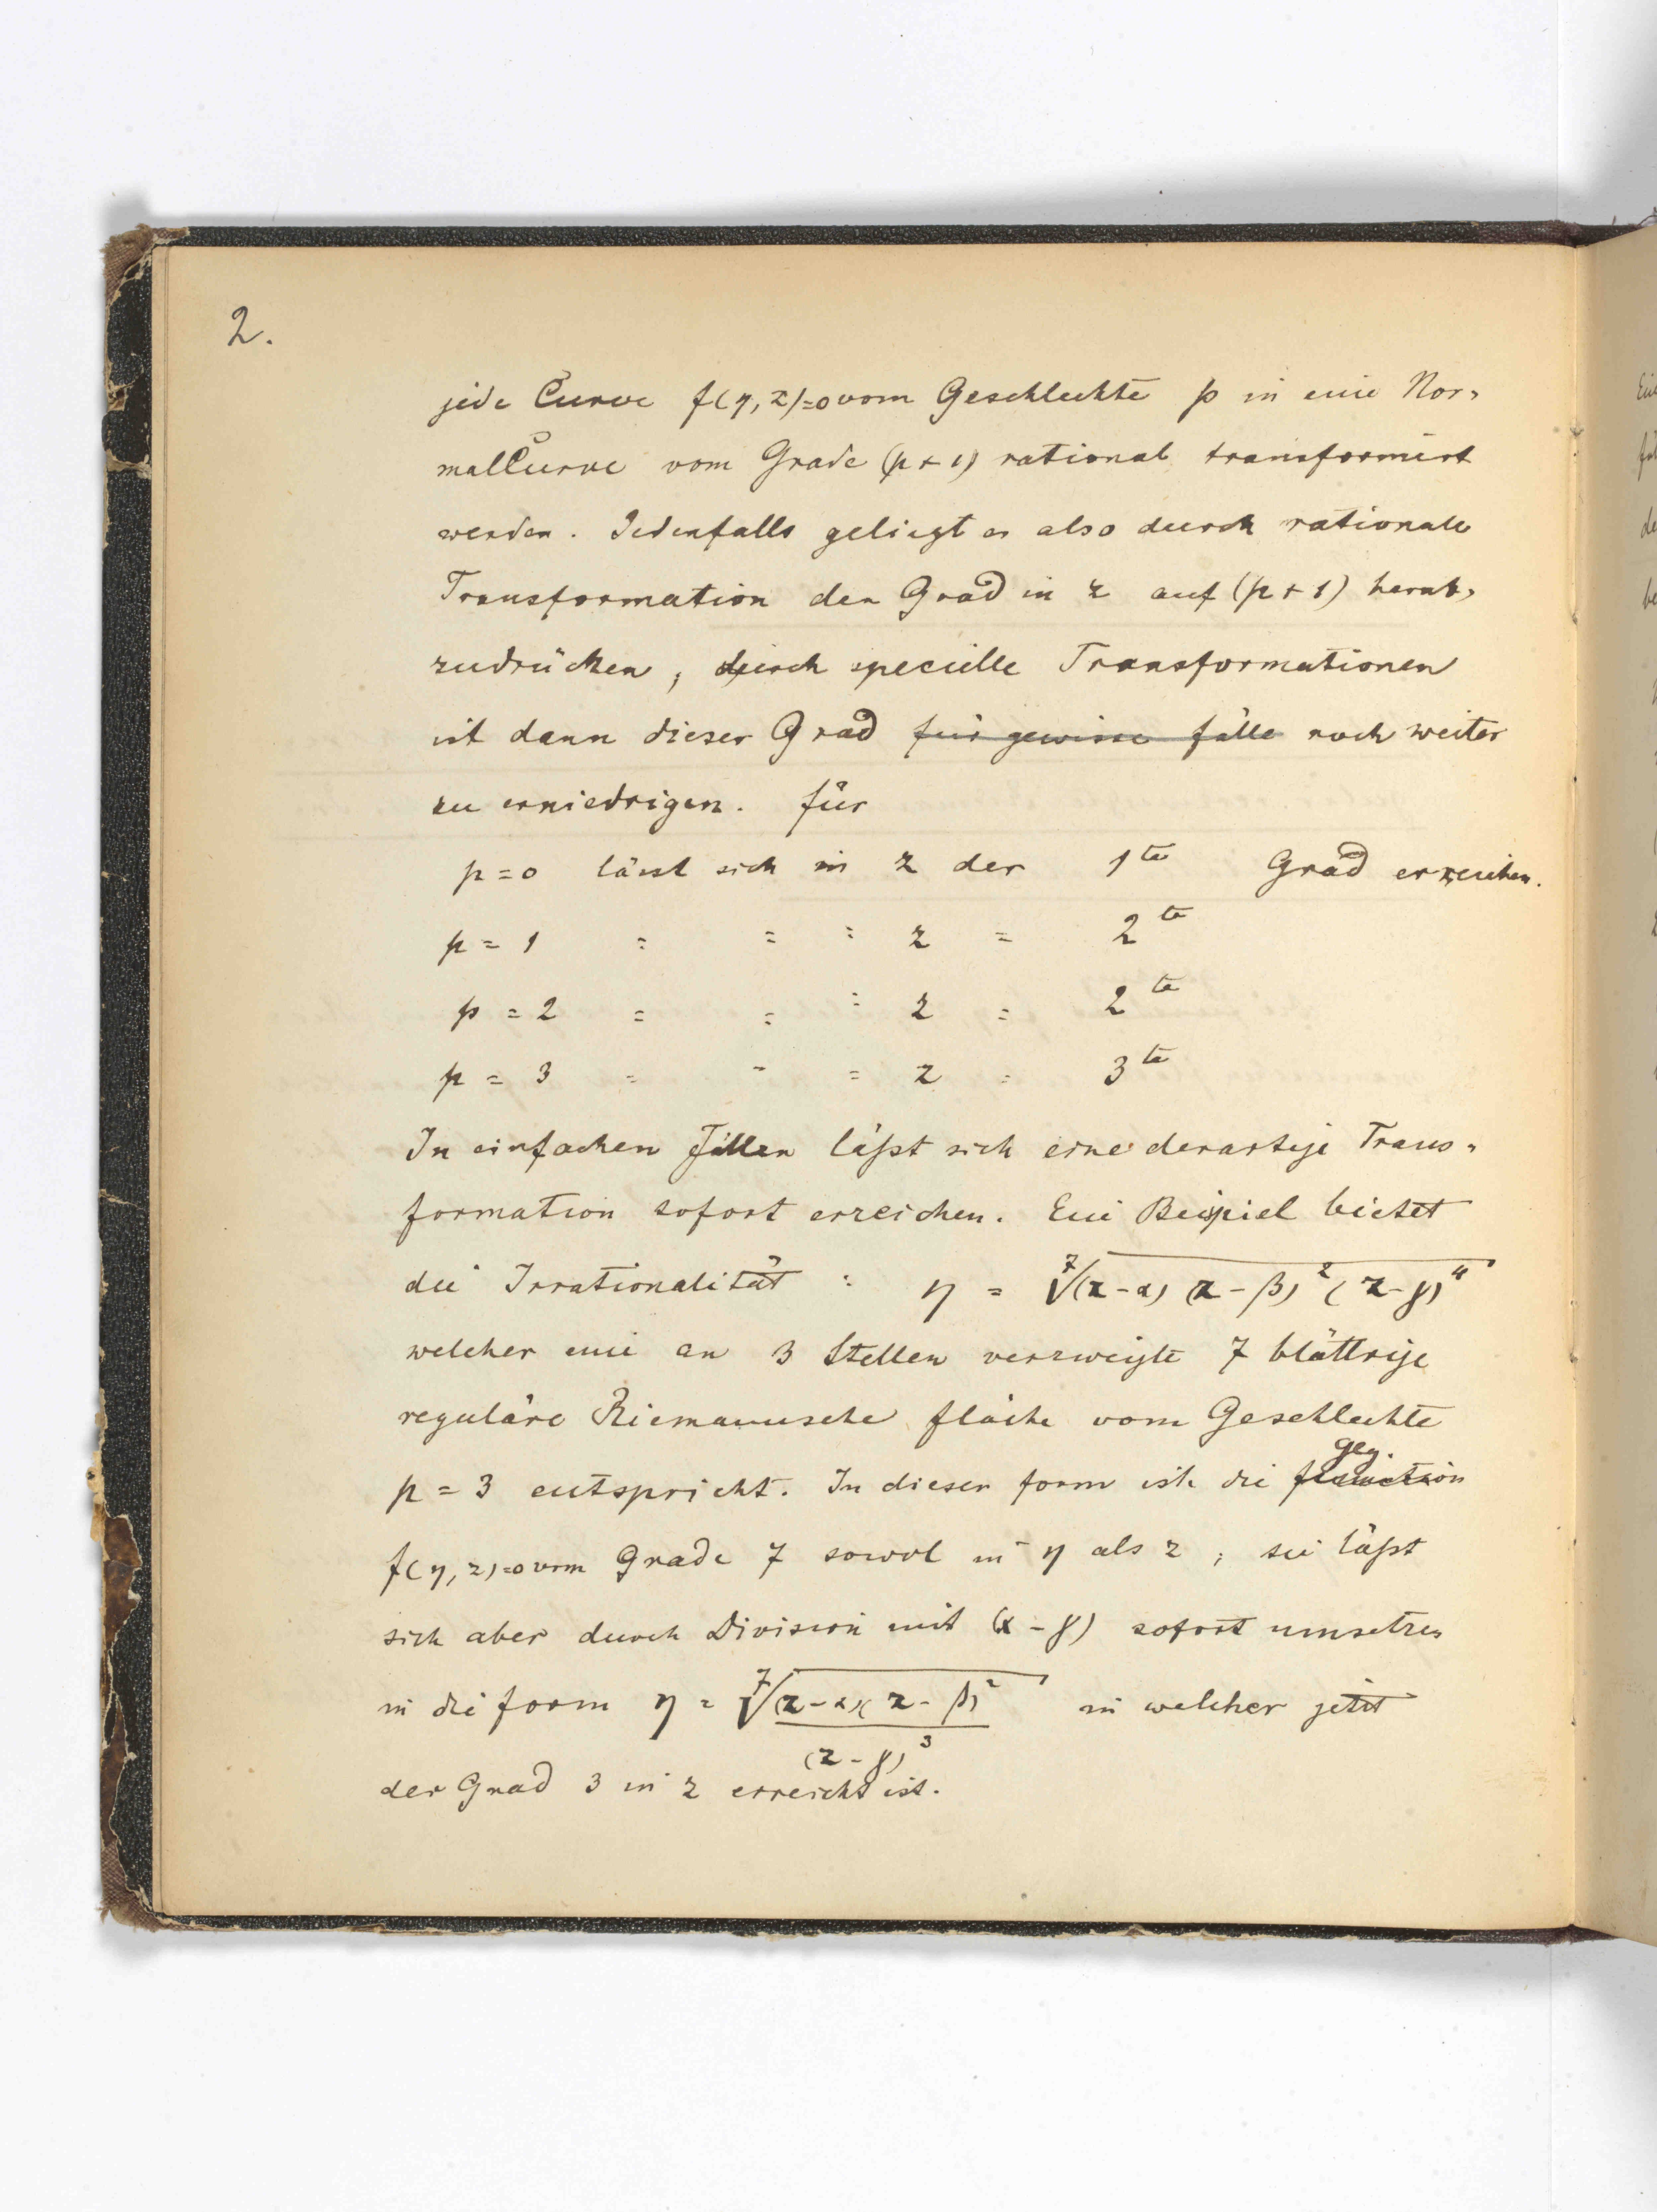 2.
jede Curve f(η, z)=0 vom Geschlechte p in eine Nor-
malCurve vom Grade (p+1) rational transformirt
werden. Jedenfalls geliegt es also durch rationale
Transformation den Grad in z auf (p+1) herab-
zudrücken, durch specielle Transformationen
ist dann dieser Grad für gewisse fälle noch weiter
zu erniedrigen. für
p=0 lässt sich in z der 1te Grad erreichen.
p = 1 = = = z = 2te
p = 2 = = = z = 2te
p = 3 = = = z = 3te
In einfachen Fällen läßt sich eine derartige Trans-
formation sofort erreichen. Ein Beispiel bietet
die Irrationalität : η = ⁷√(z-α) (z-β)² (z-γ)⁴
welcher eine an 3 Stellen verzweigte 7 blättrige
reguläre Riemannsche fläche vom Geschlechte
p = 3 entspricht. In dieser form ist die function
f(η, z)=0 vom Grade 7 sowol in η als z, sie läßt
sich aber durch Division mit (z-γ) sofort umsetzen
in die form η = ⁷√(z-α)(z-β)² / (z-γ)³ in welcher jetzt
der Grad 3 in z erreicht ist.